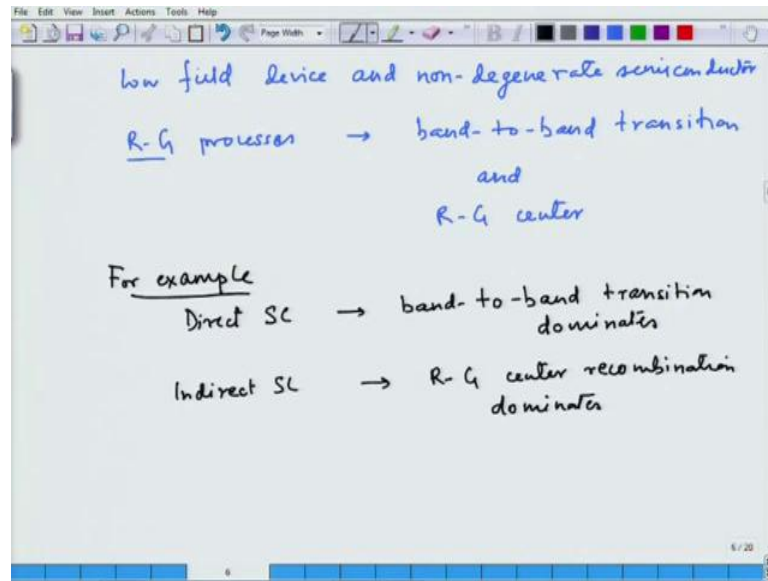 File Edit View Insert Actions Tools Help
Page Width
B I
Low field device and non-degenerate semiconductor
R-G processes → band-to-band transition
and
R-G center
For example
Direct SC → band-to-band transition
dominates
Indirect SC → R-G center recombination
dominates
6/20
6